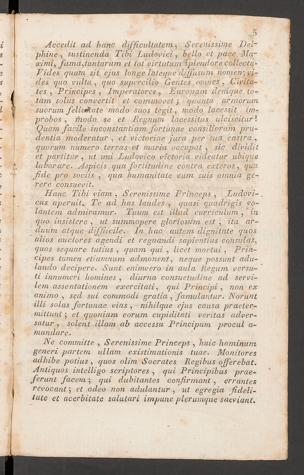 5
Accedit ad hanc difficultatem, Serenissime Del-
phine, sustinenda Tibi Ludovici, bello et pace Ma-
ximi, fama, tantarum et tot virtutum splendore collecta.
Vides quam sit ejus longe lateque diffusum nomen; vi-
des quo vultu, quo supercilio Gentes omnes, Civita-
tes, Principes, Imperatores, Europam denique to-
tam solus convertit et commovet; quanta armorum
suorum felicitate modo suos tegit, modo lacessit im-
probos, modo se et Regnum lacessitus ulciscitur!
Quam facile inconstantiam fortunae consiliorum pru-
dentia moderatur, et victoriae jura per tua castra,
quorum numero terras et maria occupat, sic dividit
et partitur, ut uni Ludovico victoria videatur ubique
laborare. Aspicis qua fortitudine contra exteros, qua
fide pro sociis, qua humanitate cum suis omnia ge-
rere consuevit.
Hanc Tibi viam, Serenissime Princeps, Ludovi-
cus aperuit. Te ad has laudes, quasi quadrigis vo-
lantem admiramur. Tuum est illud curriculum, in
quo insistere, ut summopere gloriosum est, ita ar-
duum atque difficile. In hac autem dignitate quos
alios auctores agendi et regnandi sapientius consulas,
quos sequare tutius, quam qui, licet mortui, Prin-
cipes tamen etiamnum admonent, neque possunt adu-
lando decipere. Sunt enimvero in aula Regum versu-
ti innumeri homines, diurna consuetudine ad servi-
lem assentationem exercitati, qui Principi, non ex
animo, sed sui commodi gratia, famulantur. Norunt
illi solas fortunae vias, nihilque ejus causa praeter-
mittunt; et quoniam eorum cupiditati veritas adver-
satur, solent illam ab accessu Principum procul a-
mandare.
Ne committe, Serenissime Princeps, huic hominum
generi partem ullam existimationis tuae. Monitores
adhibe potius, quos olim Socrates Regibus offerebat.
Antiquos intelligo scriptores, qui Principibus prae-
ferunt facem; qui dubitantes confirmant, errantes
revocant; et adeo non adulantur, ut egregia fideli-
tate et acerbitate salutari impune plerumque saeviant.